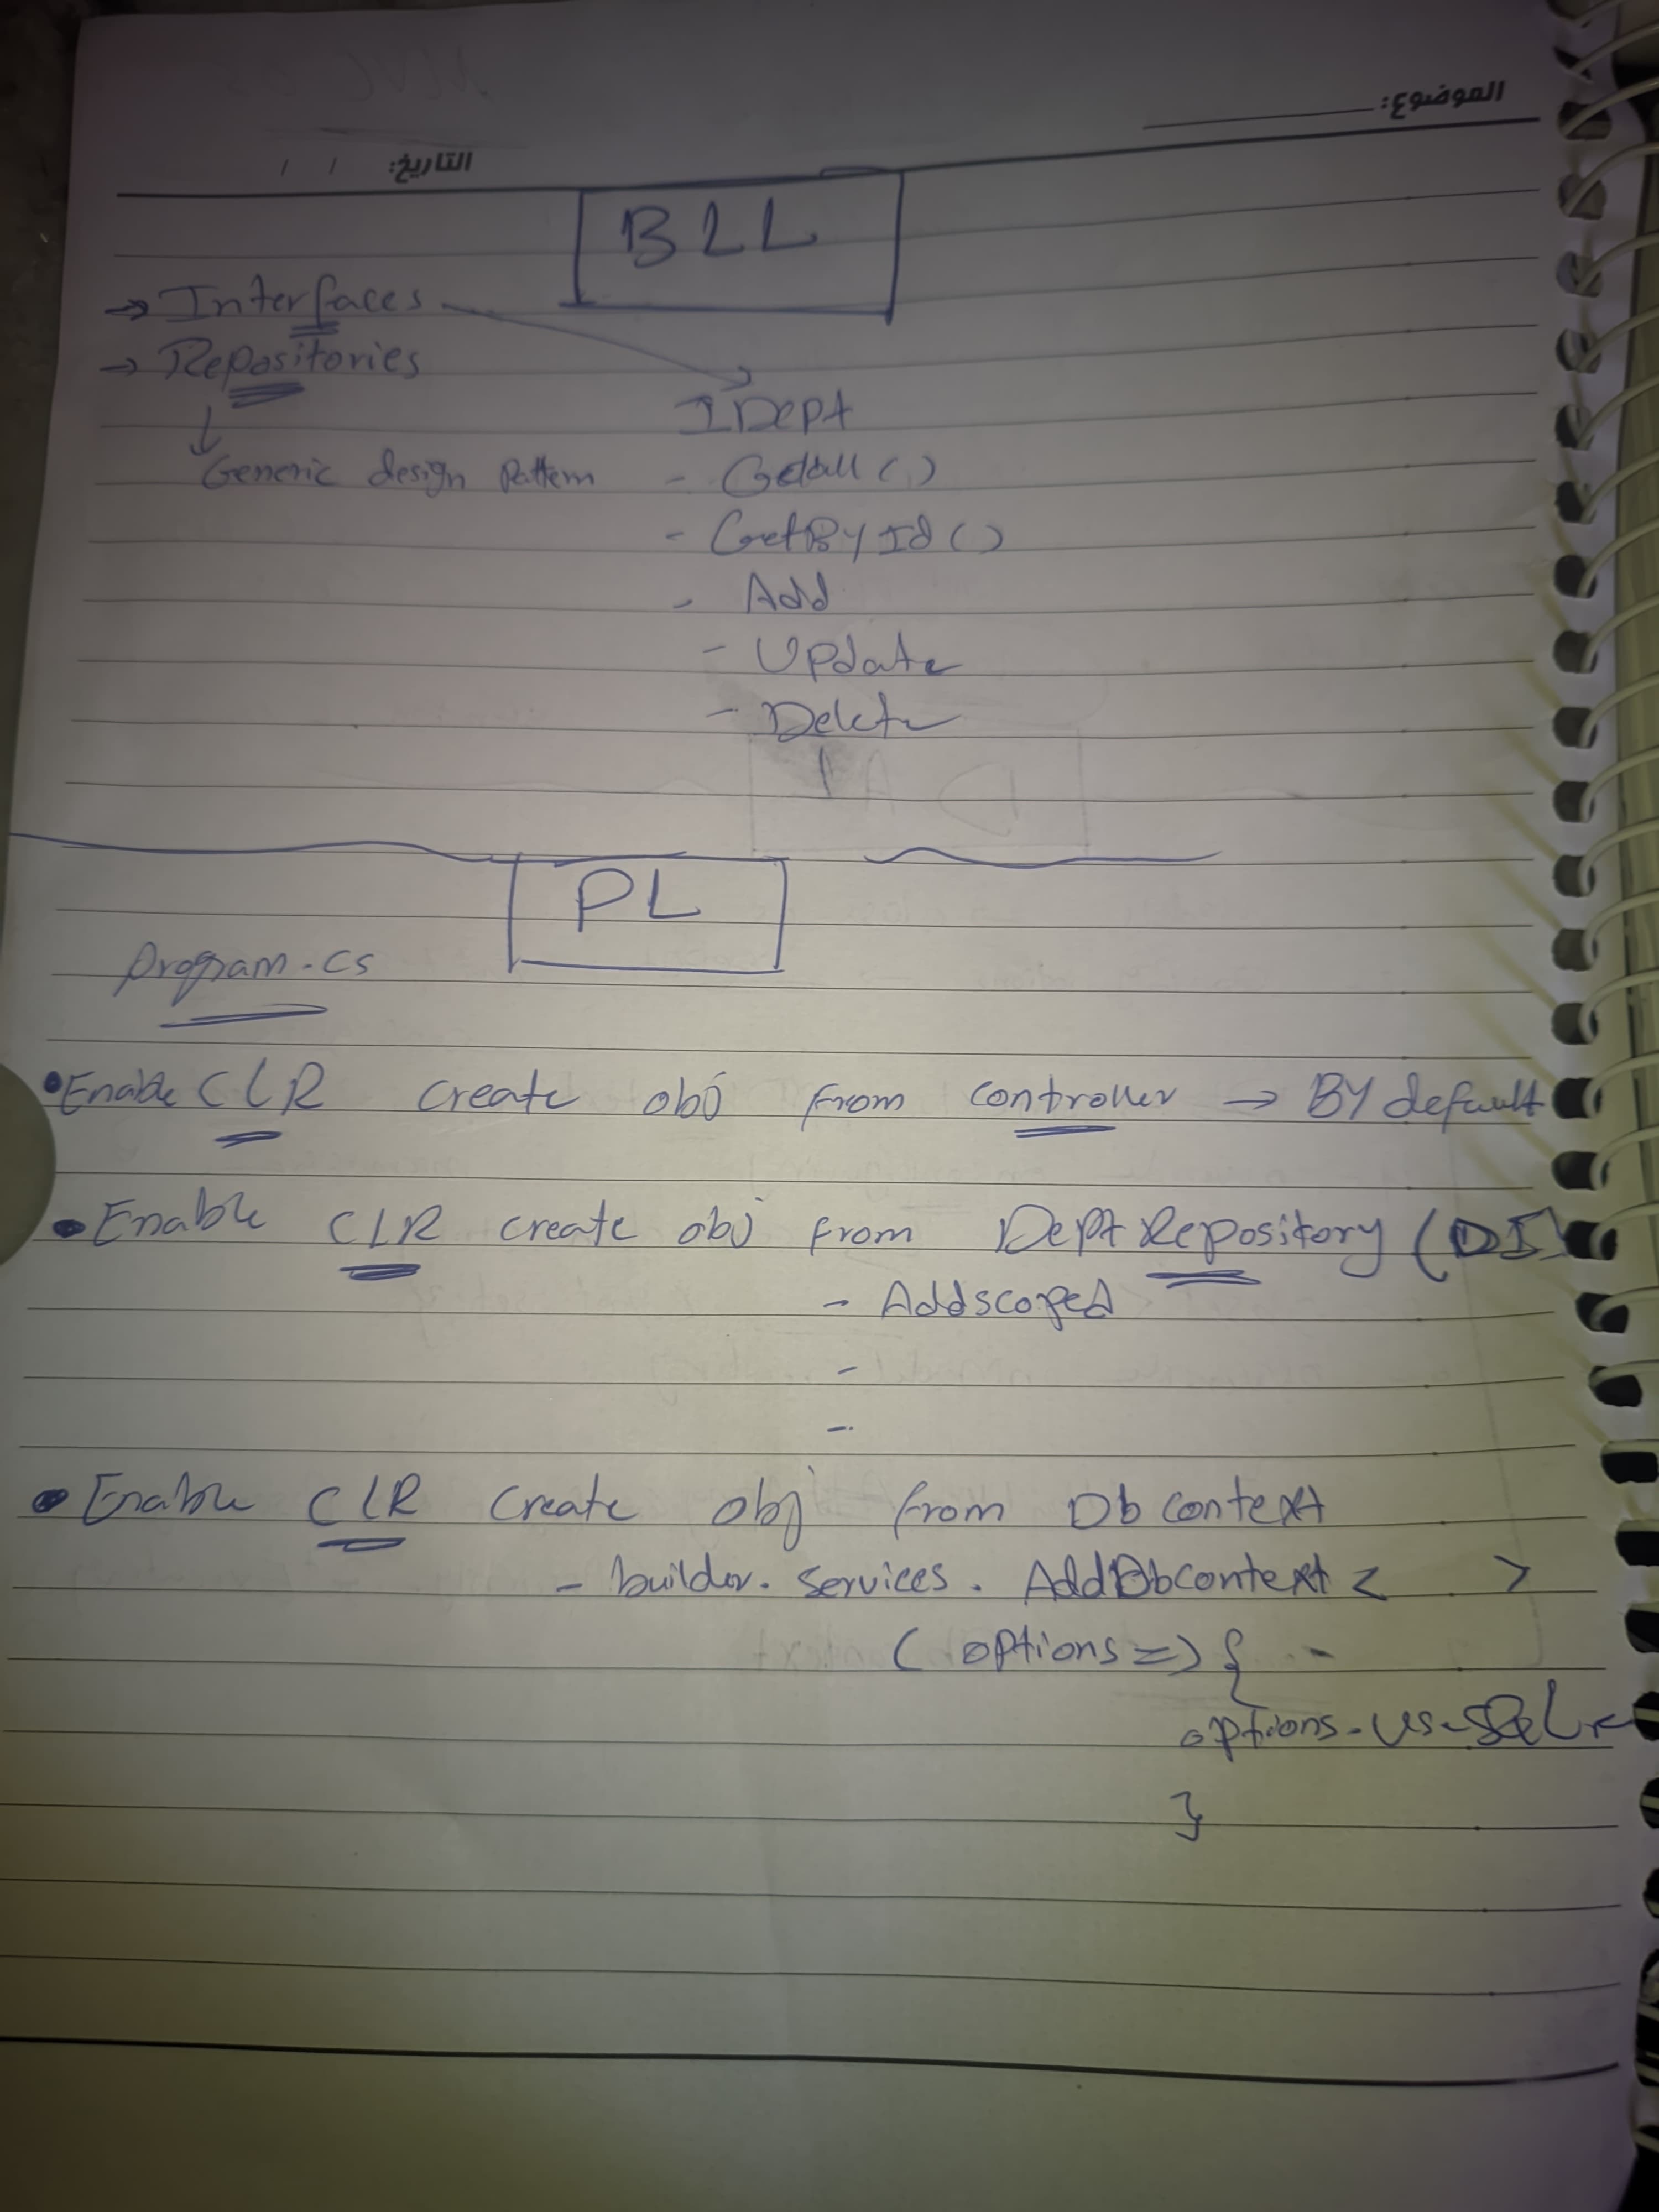 الموضوع:
التاريخ: / /
BLL
→ Interfaces
→ Repositories
IDept
↓
Generic design Pattern
- GetAll ( )
- GetBy Id ( )
- Add
- Update
- Delete
PL
Program.cs
• Enable CLR create obj From controller → BY default
• Enable CLR create obj From Dept Repository (DI)
- Addscoped
-
-
• Enable CLR Create Obj from Db context
- builder. services. AddDbcontext < >
( options => {
options.Use SQL
}